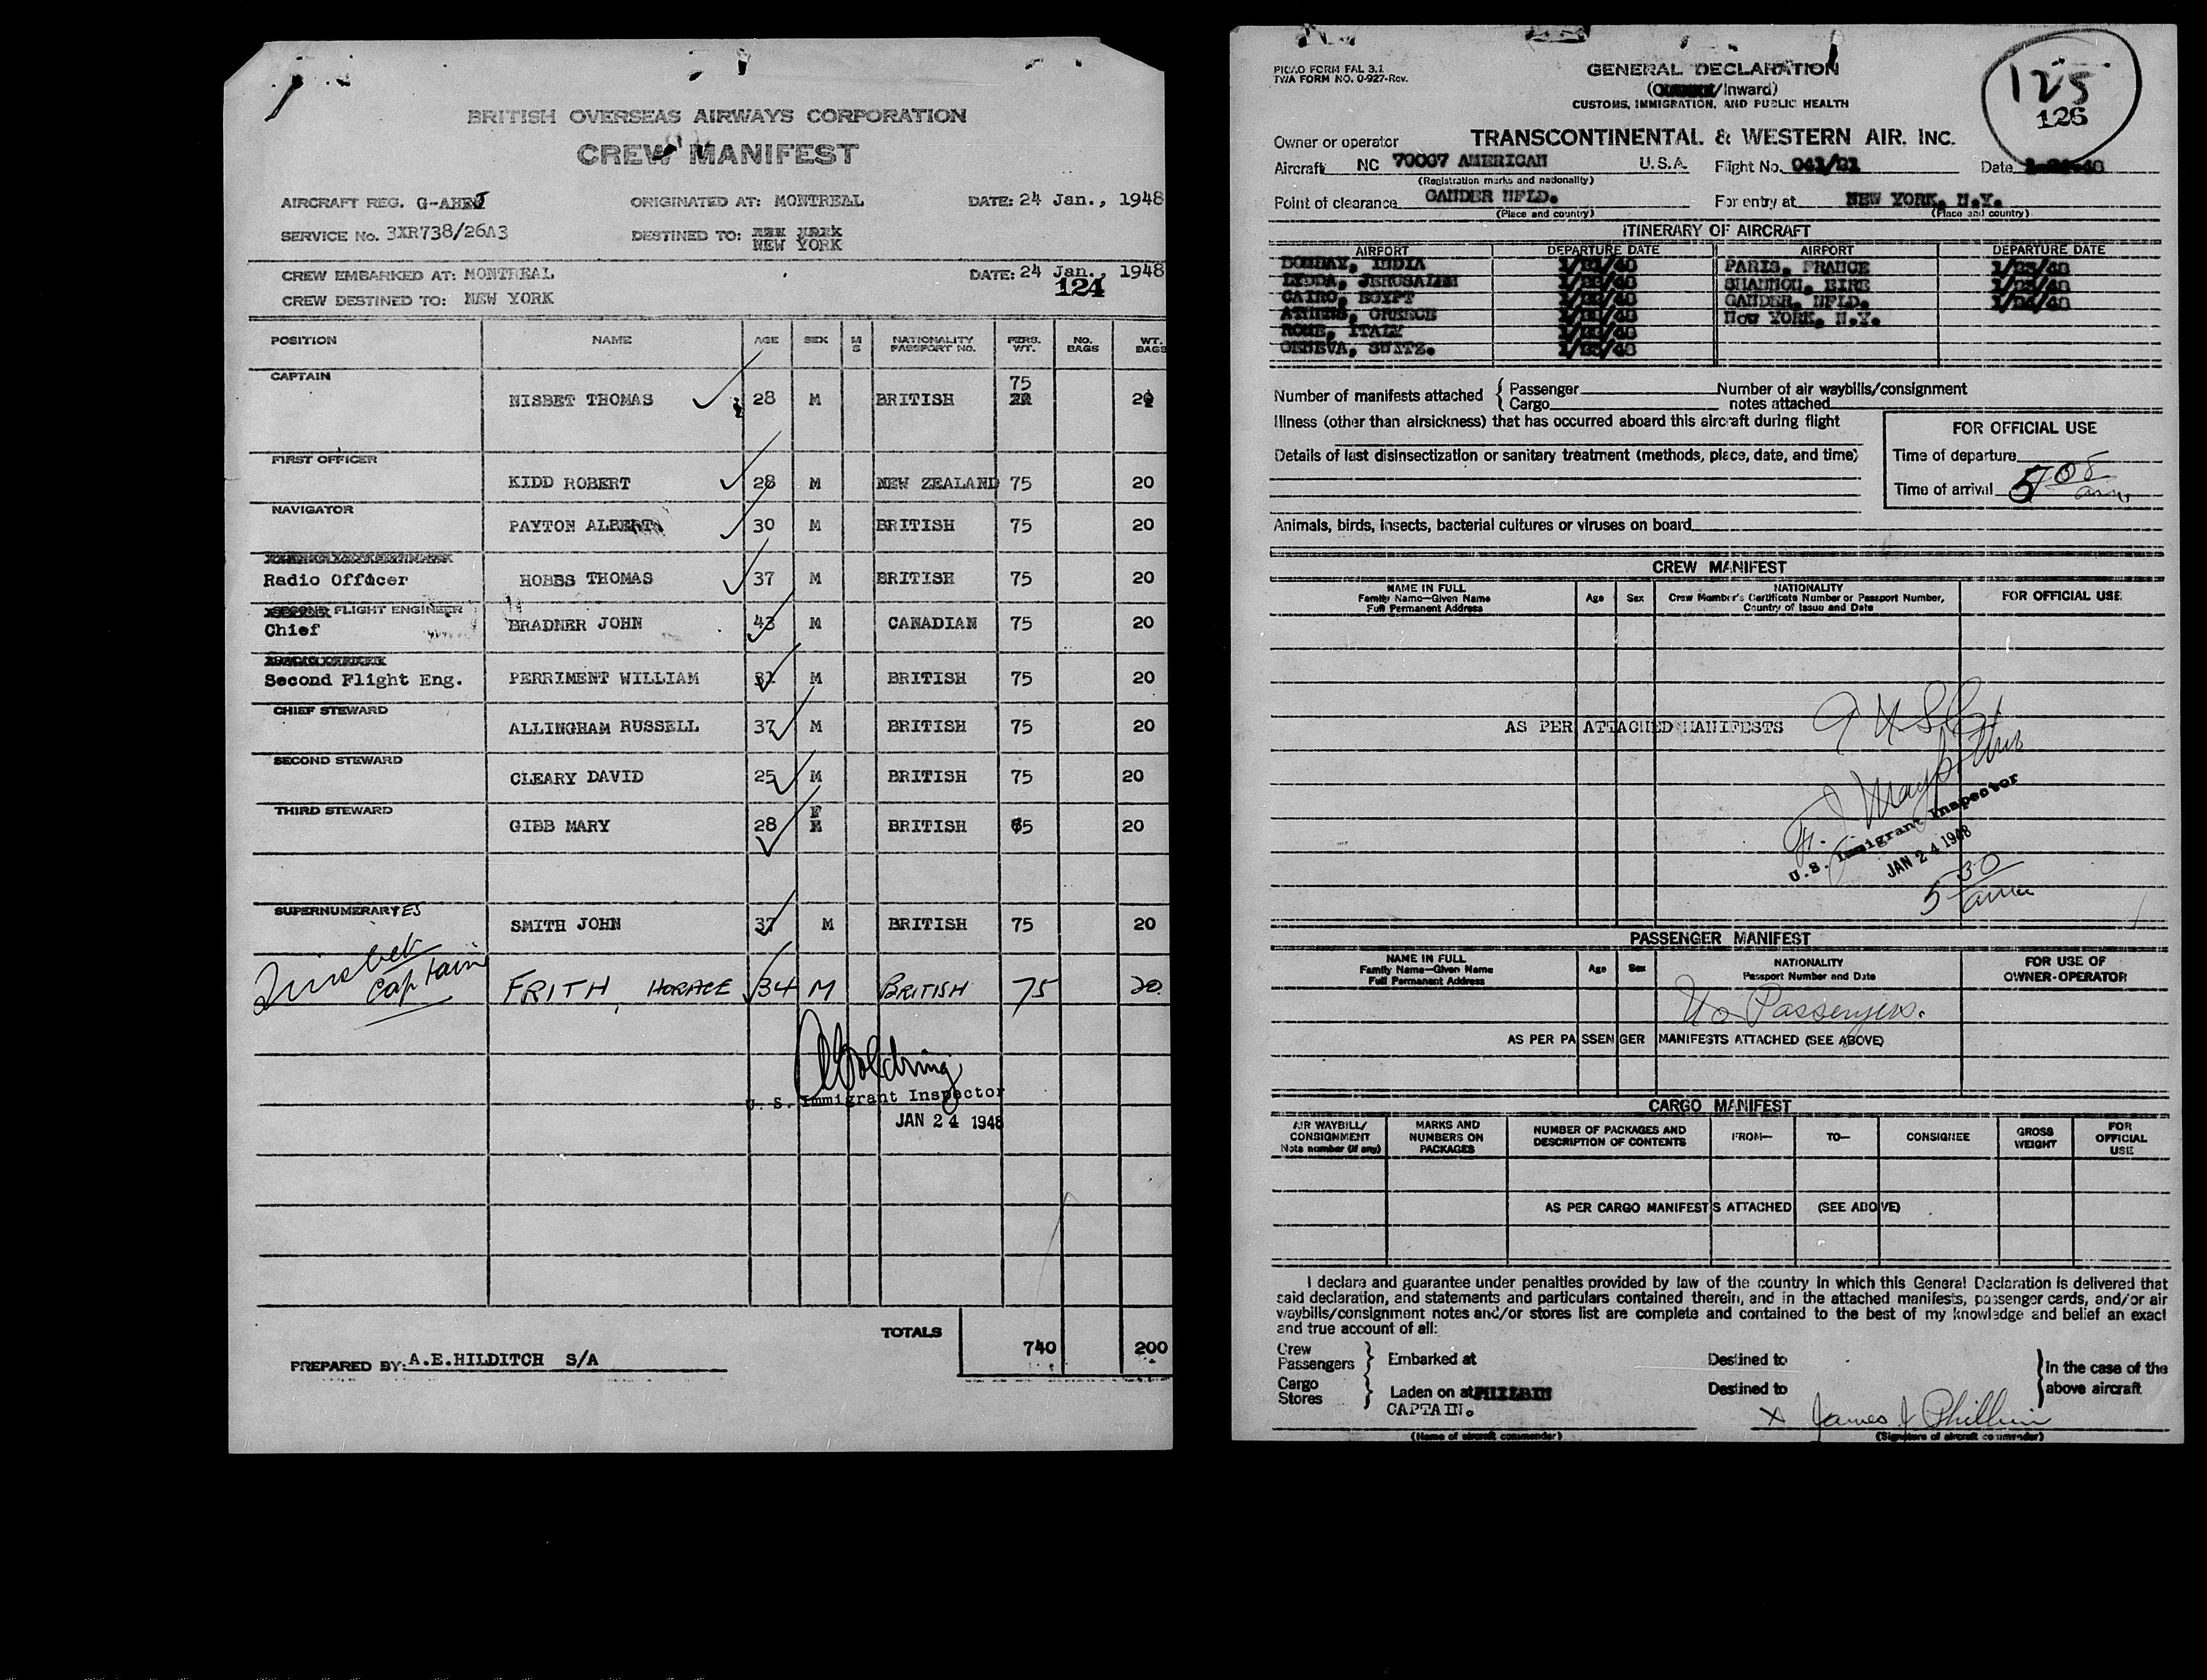 BRITISH OVERSEAS AIRWAYS CORPORATION
CREW MANIFEST
AIRCRAFT REG. ORIGINATED AT: MONTREAL DATE: 24 Jan., 1948
SERVICE No. 3XR738/26A3 DESTINED TO: NEW YORK
CREW EMBARKED AT: MONTREAL DATE: 24 Jan., 1948
124
CREW DESTINED TO: NEW YORK
POSITION NAME AGE SEX M S NATIONALITY PASSPORT NO. PERS. WT. NO. BAGS WT. BAGS
CAPTAIN
75
NISBET THOMAS 28 M BRITISH 20
FIRST OFFICER
KIDD ROBERT 28 M NEW ZEALAND 75 20
NAVIGATOR
PAYTON ALBERT 30 M BRITISH 75 20
Radio Officer HOBBS THOMAS 37 M BRITISH 75 20
SECOND FLIGHT ENGINEER
Chief BRADNER JOHN 43 M CANADIAN 75 20
Second Flight Eng. PERRIMENT WILLIAM M BRITISH 75 20
CHIEF STEWARD
ALLINGHAM RUSSELL 37 M BRITISH 75 20
SECOND STEWARD
CLEARY DAVID 25 M BRITISH 75 20
THIRD STEWARD
GIBB MARY 28 F BRITISH 65 20
SUPERNUMERARYES
SMITH JOHN 37 M BRITISH 75 20
Captain
FRITH, HORACE 34 M BRITISH 75 20
U. S. Immigrant Inspector
JAN 24 1948
TOTALS
740 200
PREPARED BY: A.E.HILDITCH S/A
PICAO FORM FAL 3.1
TWA FORM NO. 0-927-Rev.
GENERAL DECLARATION
(Inward)
CUSTOMS, IMMIGRATION, AND PUBLIC HEALTH
125
126
Owner or operator TRANSCONTINENTAL & WESTERN AIR, INC.
Aircraft NC 70007 AMERICAN U.S.A. Flight No. 041/21 Date
(Registration marks and nationality)
Point of clearance GANDER NFLD. For entry at NEW YORK, N.Y.
(Place and country) (Place and country)
ITINERARY OF AIRCRAFT
AIRPORT DEPARTURE DATE AIRPORT DEPARTURE DATE
BOMBAY, INDIA PARIS, FRANCE
LYDDA, JERUSALEM SHANNON, EIRE
CAIRO, EGYPT GANDER, NFLD.
ATHENS, GREECE New YORK, N.Y.
ROME, ITALY
GENEVA, SWITZ.
Number of manifests attached { Passenger Number of air waybills/consignment
{ Cargo notes attached
Illness (other than airsickness) that has occurred aboard this aircraft during flight
FOR OFFICIAL USE
Details of last disinsectization or sanitary treatment (methods, place, date, and time)
Time of departure
Time of arrival 5 08 am
Animals, birds, insects, bacterial cultures or viruses on board
CREW MANIFEST
NAME IN FULL
Family Name—Given Name
Full Permanent Address
Age Sex
NATIONALITY
Crew Member's Certificate Number or Passport Number,
Country of Issue and Date
FOR OFFICIAL USE
AS PER ATTACHED MANIFESTS
U.S. Immigrant Inspector
JAN 24 1948
5 30 am
PASSENGER MANIFEST
NAME IN FULL
Family Name—Given Name
Full Permanent Address
Age Sex
NATIONALITY
Passport Number and Date
FOR USE OF
OWNER-OPERATOR
No Passengers.
AS PER PASSENGER MANIFESTS ATTACHED (SEE ABOVE)
CARGO MANIFEST
AIR WAYBILL/
CONSIGNMENT
Note number (if any)
MARKS AND
NUMBERS ON
PACKAGES
NUMBER OF PACKAGES AND
DESCRIPTION OF CONTENTS
FROM— TO— CONSIGNEE
GROSS
WEIGHT
FOR
OFFICIAL
USE
AS PER CARGO MANIFESTS ATTACHED (SEE ABOVE)
I declare and guarantee under penalties provided by law of the country in which this General Declaration is delivered that
said declaration, and statements and particulars contained therein, and in the attached manifests, passenger cards, and/or air
waybills/consignment notes and/or stores list are complete and contained to the best of my knowledge and belief an exact
and true account of all:
Crew
Passengers } Embarked at Destined to } In the case of the
Cargo
Stores } Laden on at PHILBIN Destined to above aircraft
CAPTAIN.
X James J Philbin
(Name of aircraft commander) (Signature of aircraft commander)